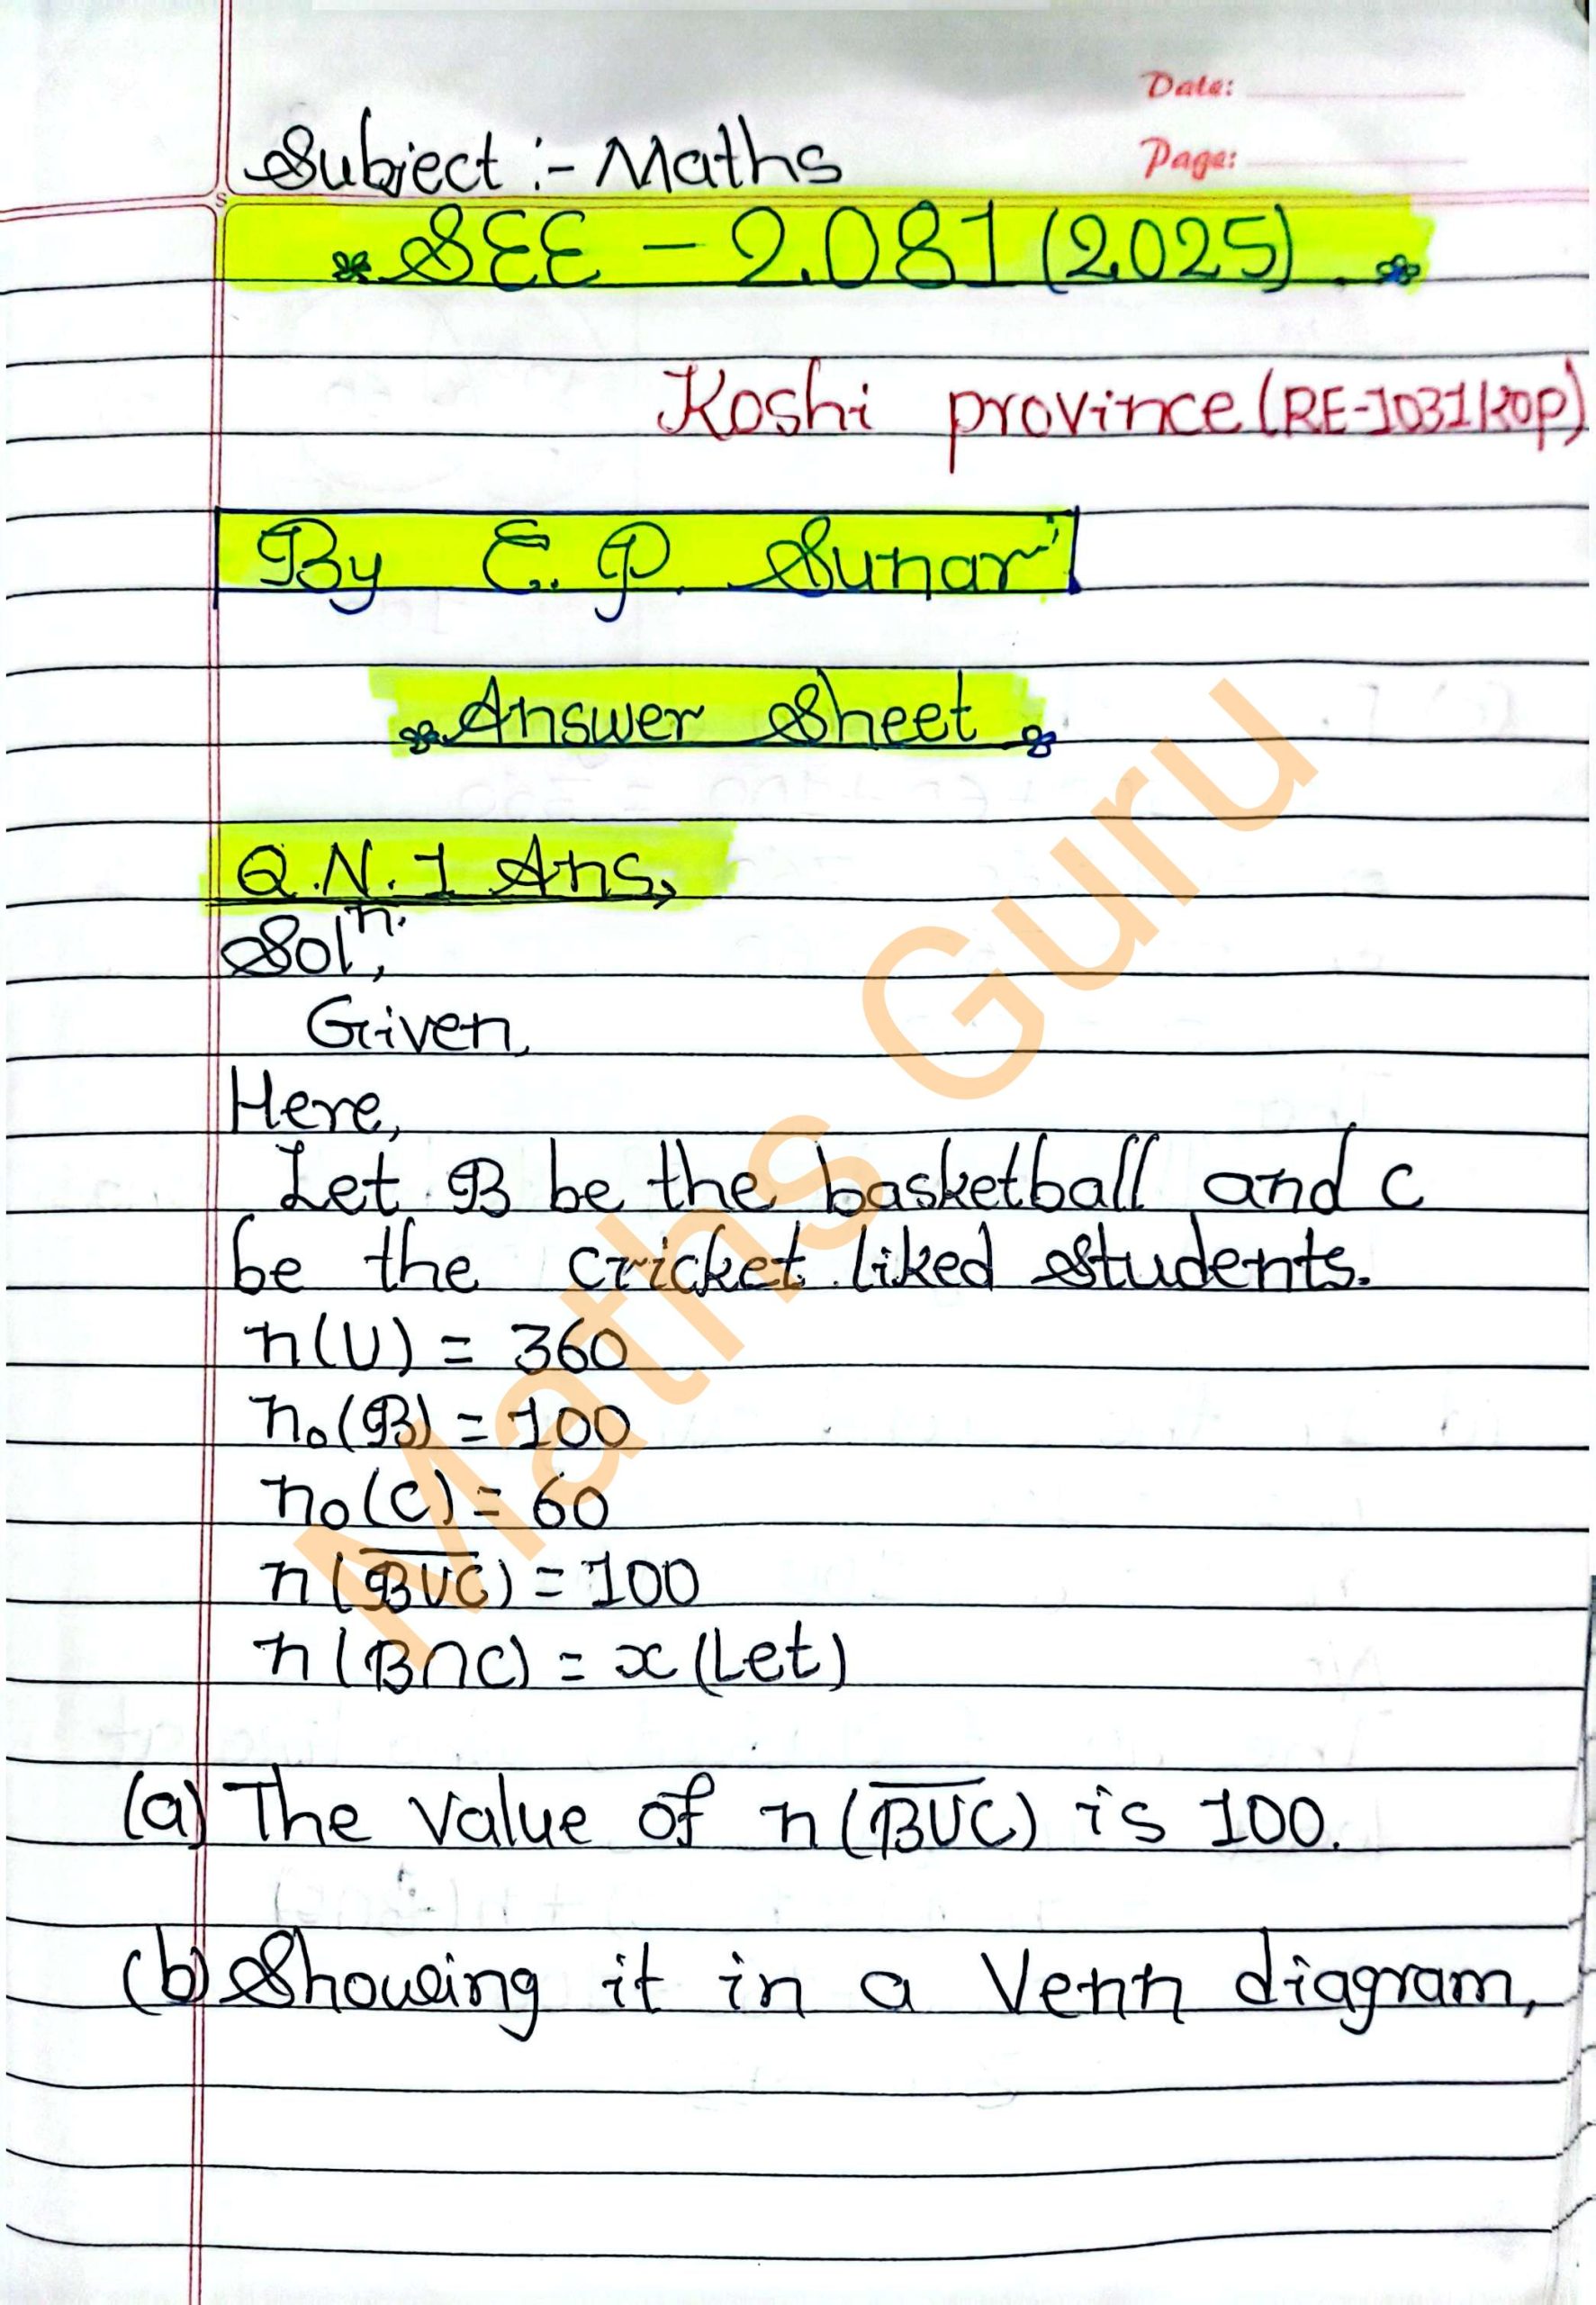 Date:
Page:
Subject :- Maths
SEE - 2081 (2025)
Koshi province (RE-1031KOP)
By E. P. Sunar
Answer Sheet
Q.N. 1 Ans,
Solⁿ.,
Given,
Here,
Let B be the basketball and C
be the cricket liked students.
n(U) = 360
n₀(B) = 100
n₀(C) = 60
n(B̅∪̅C̅) = 100
n(B∩C) = x (Let)
(a) The value of n(B̅∪̅C̅) is 100.
(b) Showing it in a Venn diagram,
Maths Guru